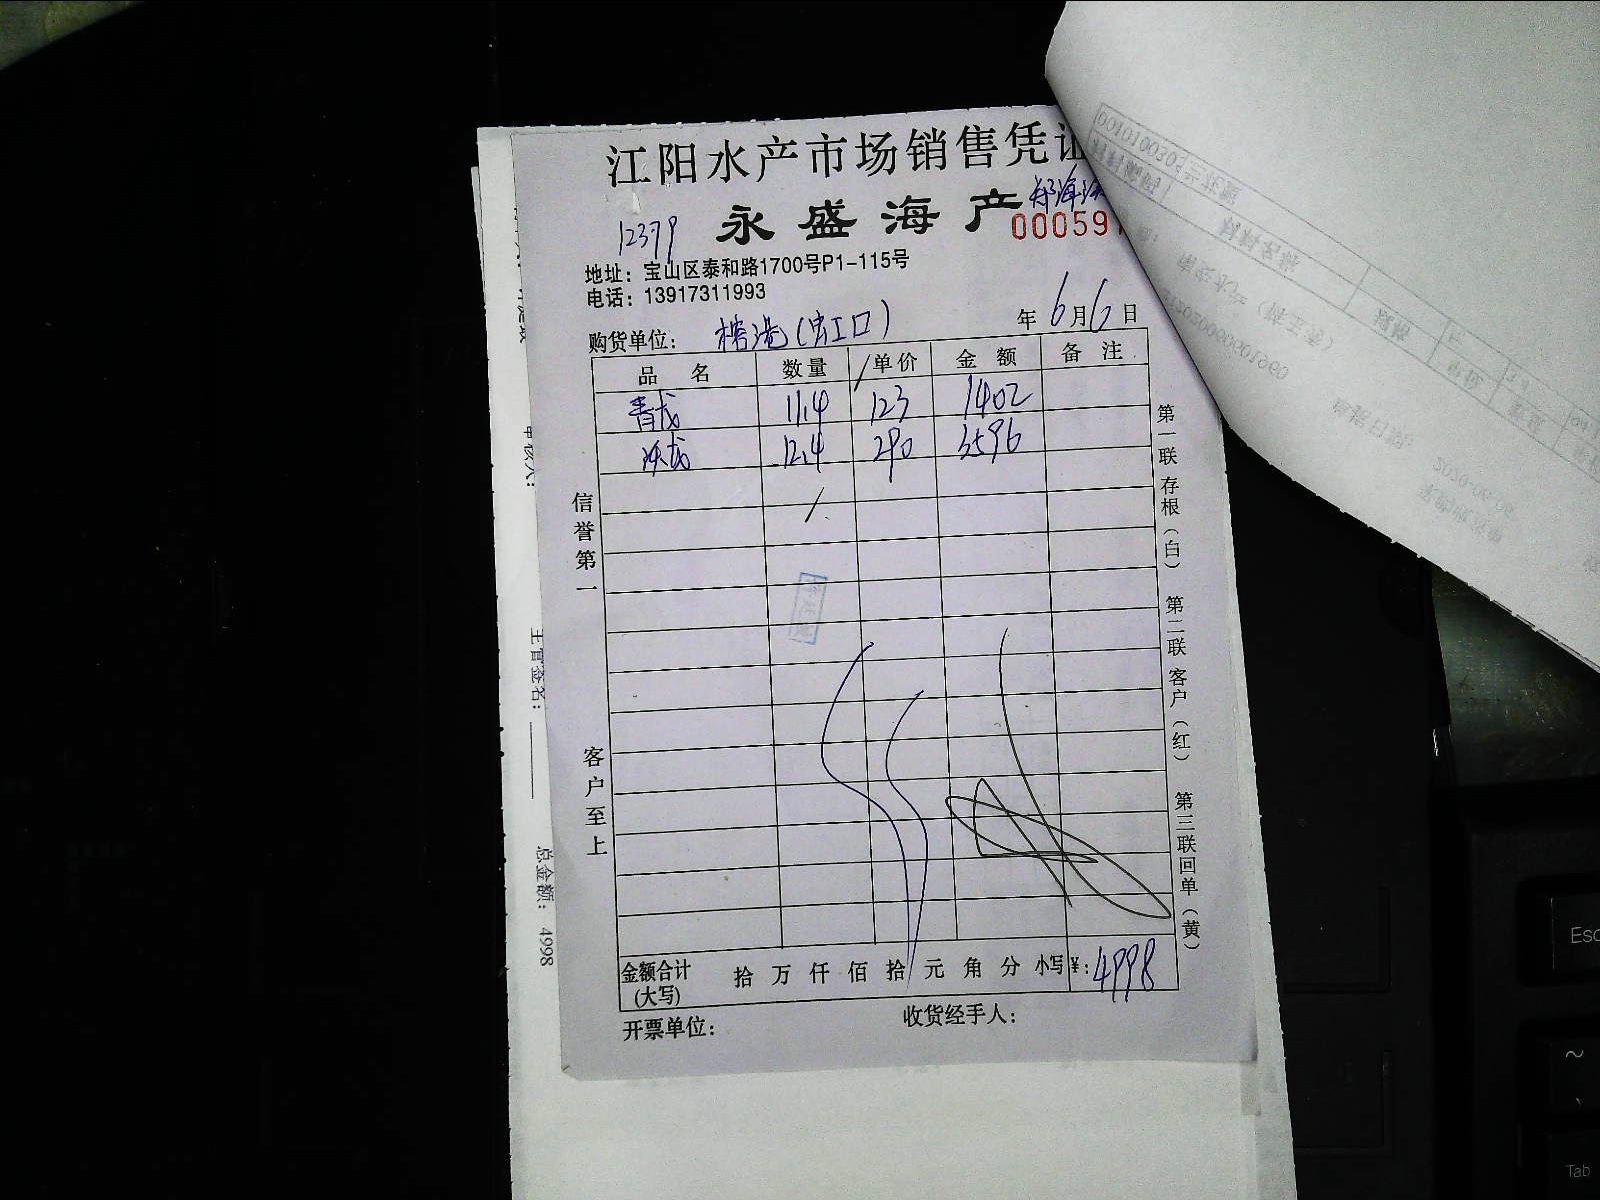 江阳水产市场销售凭证
永盛海产
12379
000591
地址：宝山区泰和路1700号P1-115号
电话：13917311993
购货单位： (虹口)
年 6月6日
品 名 数量 单价 金 额 备 注
青龙 11.4 123 1402
沃龙 12.4 290 3596
信誉第一
客户至上
第一联存根（白） 第二联客户（红） 第三联回单（黄）
金额合计 拾 万 仟 佰 拾 元 角 分 小写￥：4998
(大写)
开票单位： 收货经手人：
主官签名：
总金额： 4998
Esc
~
Tab